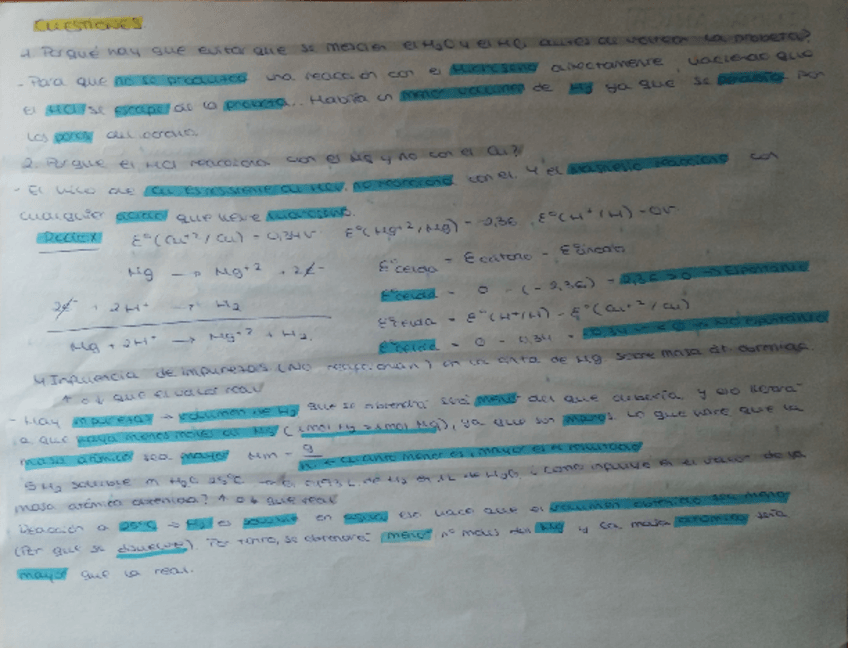 CUESTIONES
1. Porqué hay que evitar que se mezclen el H2O y el HCl antes de voltear la probeta?
- Para que no se produzca una reacción con el directamente haciendo que
el HCl se escape de la probeta. Habría un menor volumen de H2 ya que se por
los poros del corcho.
2. Porque el HCl reacciona con el Mg y no con el Cu?
- El hilo de Cu es resistente al HCl, no reacciona con el. Y el magnesio reacciona con
cualquier ácido que lleve
Redox E°(Cu+2/Cu) = 0,34V E°(Mg+2/Mg) = -2,36 E°(H+/H) = 0V
Mg → Mg+2 + 2e- E°celda = E cátodo - E°ánodo
2e- + 2H+ → H2 E°celda = 0 - (-2,36) = 2,36 > 0 → Espontáneo
E°celda = E°(H+/H) - E°(Cu+2/Cu)
Mg + 2H+ → Mg+2 + H2 E°celda = 0 - 0,34 = -0,34 < 0 → No espontáneo
4 Influencia de impurezas (No reaccionan) en la cinta de Mg sobre masa at. obtenida.
↑ o ↓ que el valor real
- Hay impurezas → volumen de H2 que se obtendrá será menor del que debería y eso
a que haya menos moles de Mg (1mol H2 = 1mol Mg), ya que son menos. Lo que hace que la
masa atómica sea mayor Mm = g/n → cuanto menor es, mayor es el resultado
5 H2 soluble en H2O 25°C → L de H2 en 1L de H2O, ¿como influye en el valor de la
masa atómica obtenida? ↑ o ↓ que real
Reacción a 25°C → H2 es soluble en agua, eso hace que el volumen obtenido sea menor
(Por que se disuelve). Por tanto, se obtendrá menor nº moles del Mg y su masa atómica será
mayor que la real.